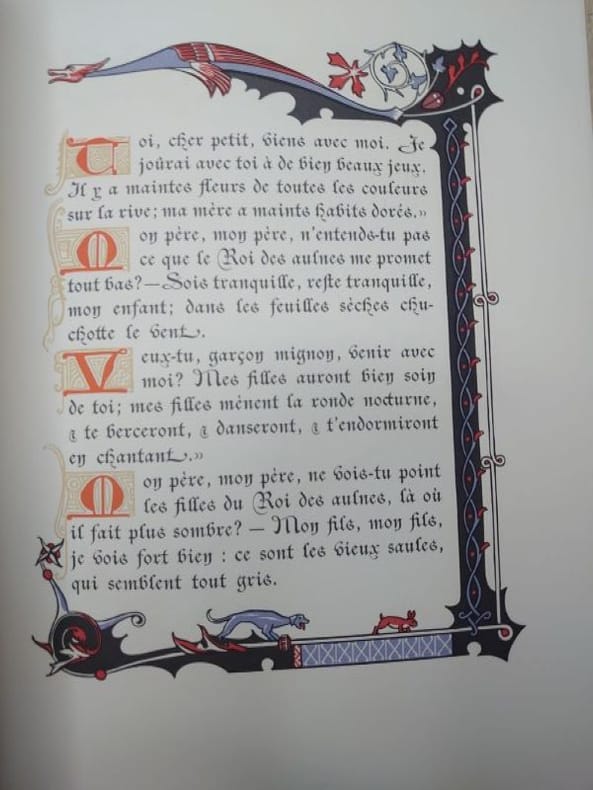 Toi, cher petit, viens avec moi. Je
joûrai avec toi à de bien beaux jeux.
Il y a maintes fleurs de toutes les couleurs
sur la rive; ma mère a maints habits dorés.»
Mon père, mon père, n'entends-tu pas
ce que le Roi des aulnes me promet
tout bas? — Sois tranquille, reste tranquille,
mon enfant; dans les feuilles sèches chu-
chotte le vent.
Veux-tu, garçon mignon, venir avec
moi? Mes filles auront bien soin
de toi; mes filles mènent la ronde nocturne,
& te berceront, & danseront, & t'endormiront
en chantant.»
Mon père, mon père, ne vois-tu point
les filles du Roi des aulnes, là où
il fait plus sombre? — Mon fils, mon fils,
je vois fort bien : ce sont les vieux saules,
qui semblent tout gris.